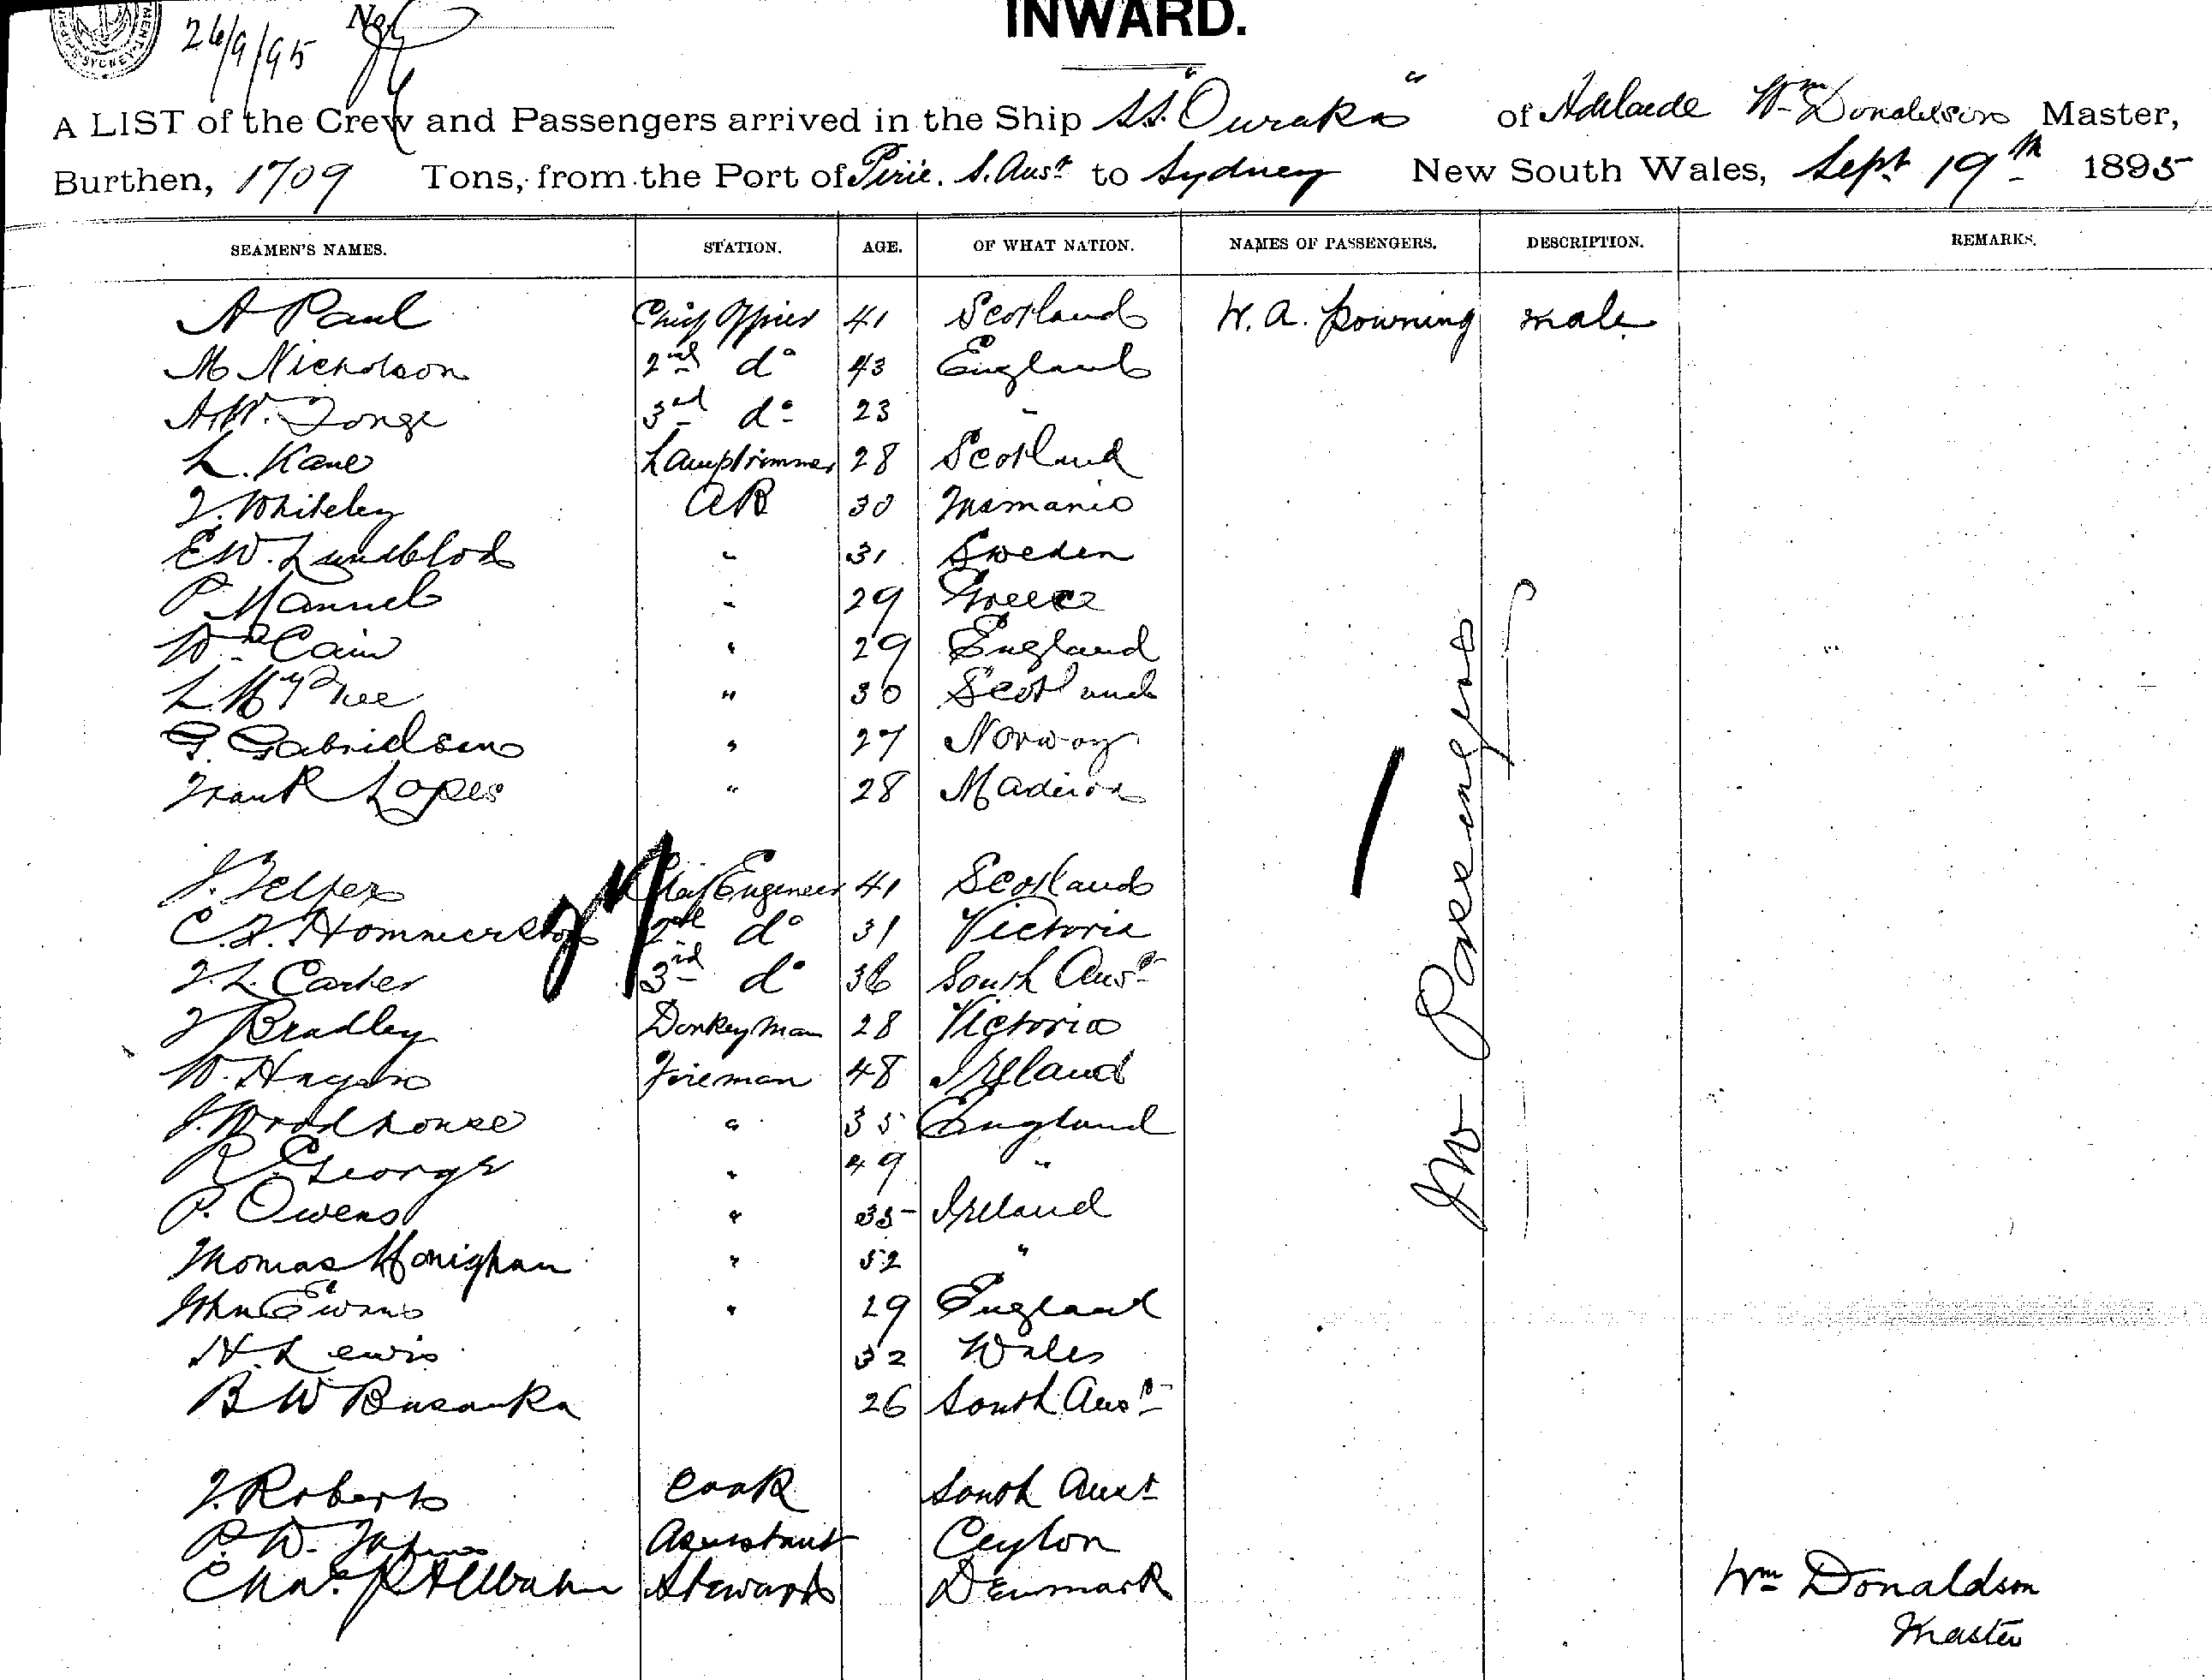 26/9/95
INWARD.
A LIST of the Crew and Passengers arrived in the Ship S.S. "Ouraka" of Adelaide Wm Donaldson Master,
Burthen, 1709 Tons, from the Port of Pirie. S. Aust to Sydney New South Wales, Sept 19th 1895
SEAMEN'S NAMES. STATION. AGE. OF WHAT NATION. NAMES OF PASSENGERS. DESCRIPTION. REMARKS.
A Paul Chief Officer 41 Scotland W. A. Downing male
M Nicholson 2nd do 43 England
A.W. Tonge 3rd do 23 "
L. Kane Lamptrimmer 28 Scotland
T. Whiteley AB 30 Tasmania
E.W. Lundblod " 31 Sweden
P. Manuel " 29 Greece
Wm Cain " 29 England
L. McPhee " 30 Scotland
G. Gabrielsen " 27 Norway
Frank Lopes " 28 Madeira
J. Telfer Chief Engineer 41 Scotland
C.F. Hommersley 2nd do 31 Victoria
T.L. Carter 3rd do 36 South Aust
J Bradley Donkeyman 28 Victoria
W. Hagan Fireman 48 Ireland
J. Woodhouse " 35 England
R. George " 49 "
P. Owens " 35 Ireland
Thomas Honighan " 52 "
John Evans " 29 England
H. Lewis 32 Wales
B W Basanka 26 South Aust
J. Roberts Cook South Aust
P. W. Assistant Ceylon
Chas. Steward Denmark
Passengers
Wm Donaldson
Master